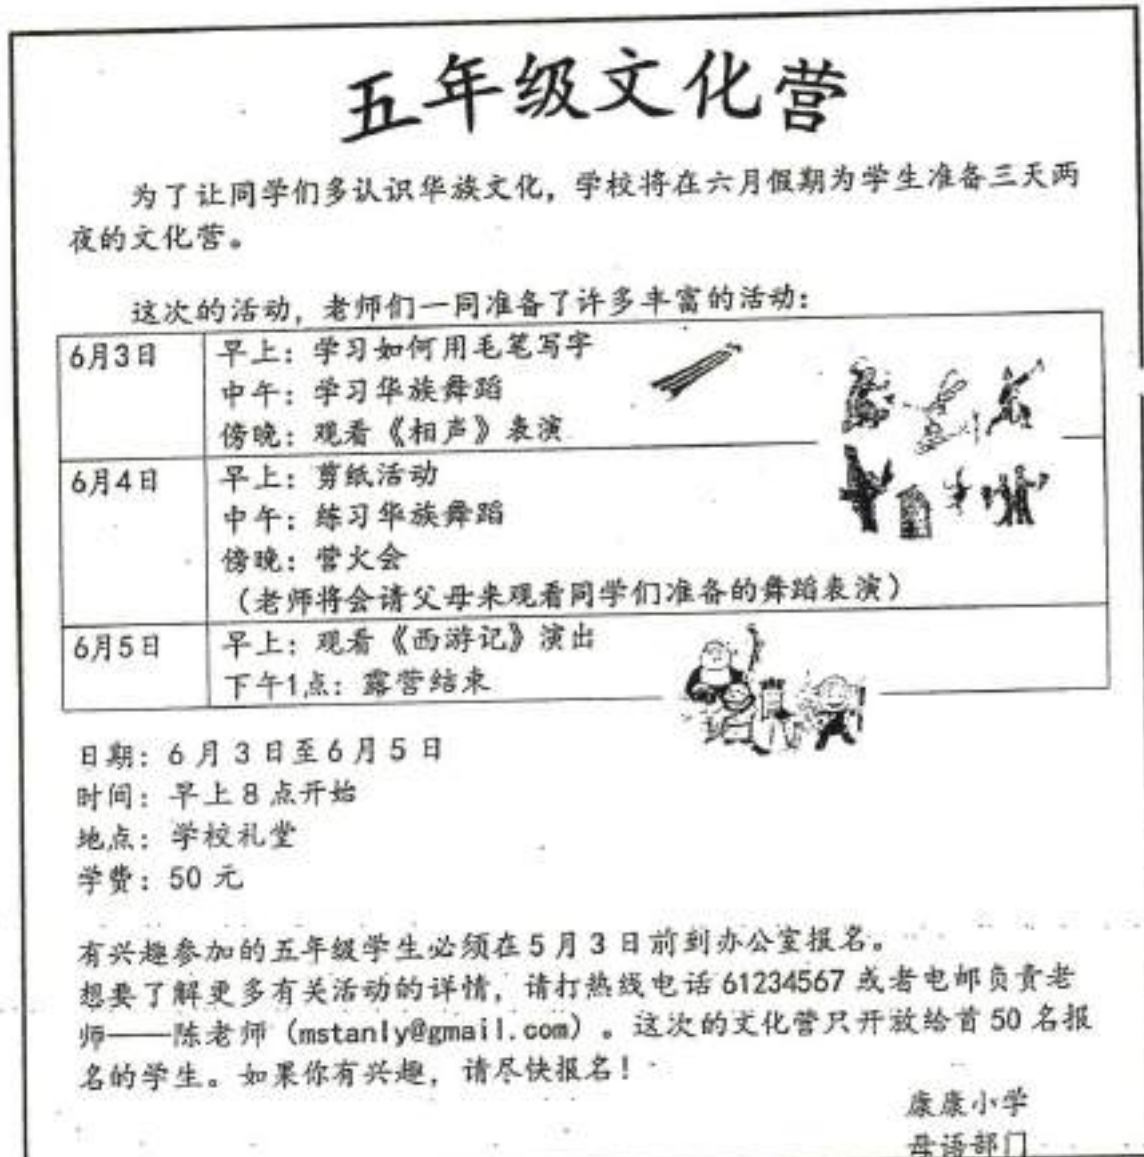 五年级文化营
为了让同学们多认识华族文化，学校将在六月假期为学生准备三天两
夜的文化营。
这次的活动，老师们一同准备了许多丰富的活动：
6月3日
早上：学习如何用毛笔写字
中午：学习华族舞蹈
傍晚：观看《相声》表演
6月4日
早上：剪纸活动
中午：练习华族舞蹈
傍晚：营火会
（老师将会请父母来观看同学们准备的舞蹈表演）
6月5日
早上：观看《西游记》演出
下午1点：露营结束
日期：6月3日至6月5日
时间：早上8点开始
地点：学校礼堂
学费：50元
有兴趣参加的五年级学生必须在5月3日前到办公室报名。
想要了解更多有关活动的详情，请打热线电话61234567或者电邮负责老
师——陈老师（mstanly@gmail.com）。这次的文化营只开放给首50名报
名的学生。如果你有兴趣，请尽快报名！
康康小学
母语部门